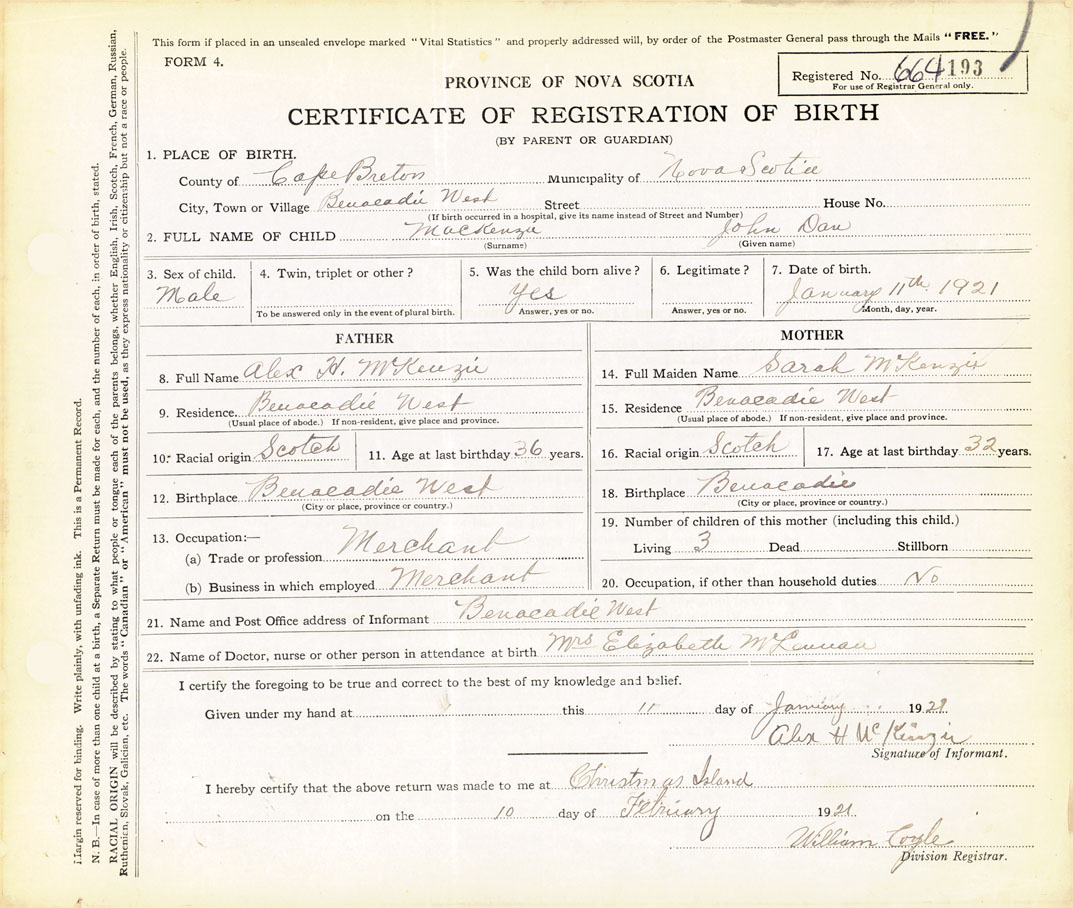 This form if placed in an unsealed envelope marked "Vital Statistics" and properly addressed will, by order of the Postmaster General pass through the Mails "FREE."
FORM 4.
Registered No. 664 193
For use of Registrar General only.
PROVINCE OF NOVA SCOTIA
CERTIFICATE OF REGISTRATION OF BIRTH
(BY PARENT OR GUARDIAN)
1. PLACE OF BIRTH.
County of Cape Breton Municipality of Nova Scotia
City, Town or Village Benacadie West Street House No.
(If birth occurred in a hospital, give its name instead of Street and Number)
2. FULL NAME OF CHILD MacKenzie John Dan
(Surname) (Given name)
3. Sex of child. 4. Twin, triplet or other? 5. Was the child born alive? 6. Legitimate? 7. Date of birth.
Male Yes January 11th 1921
To be answered only in the event of plural birth. Answer, yes or no. Answer, yes or no. Month, day, year.
FATHER
8. Full Name Alex H. McKenzie
9. Residence. Benacadie West
(Usual place of abode.) If non-resident, give place and province.
10. Racial origin Scotch 11. Age at last birthday 36 years.
12. Birthplace Benacadie West
(City or place, province or country.)
13. Occupation:—
(a) Trade or profession Merchant
(b) Business in which employed Merchant
MOTHER
14. Full Maiden Name Sarah McKenzie
15. Residence Benacadie West
(Usual place of abode.) If non-resident, give place and province.
16. Racial origin Scotch 17. Age at last birthday 32 years.
18. Birthplace Benacadie
(City or place, province or country.)
19. Number of children of this mother (including this child.)
Living 3 Dead Stillborn
20. Occupation, if other than household duties No
21. Name and Post Office address of Informant Benacadie West
22. Name of Doctor, nurse or other person in attendance at birth Mrs Elizabeth McLennan
I certify the foregoing to be true and correct to the best of my knowledge and belief.
Given under my hand at this 11 day of January 1921
Alex H McKinzie
Signature of Informant.
I hereby certify that the above return was made to me at Christmas Island
on the 10 day of February 1921
William Coyle
Division Registrar.
Margin reserved for binding. Write plainly, with unfading ink. This is a Permanent Record.
N. B.—In case of more than one child at a birth, a Separate Return must be made for each, and the number of each, in order of birth, stated.
RACIAL ORIGIN will be described by stating to what people or tongue each of the parents belongs, whether English, Irish, Scotch, French, German, Russian,
Ruthenian, Slovak, Galician, etc. The words "Canadian" or "American" must not be used, as they express nationality or citizenship but not a race or people.